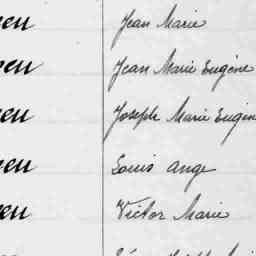 eu Jean Marie
eu Jean Marie Eugène
eu Joseph Marie Eugèn
eu Louis Ange
eu Victor Marie